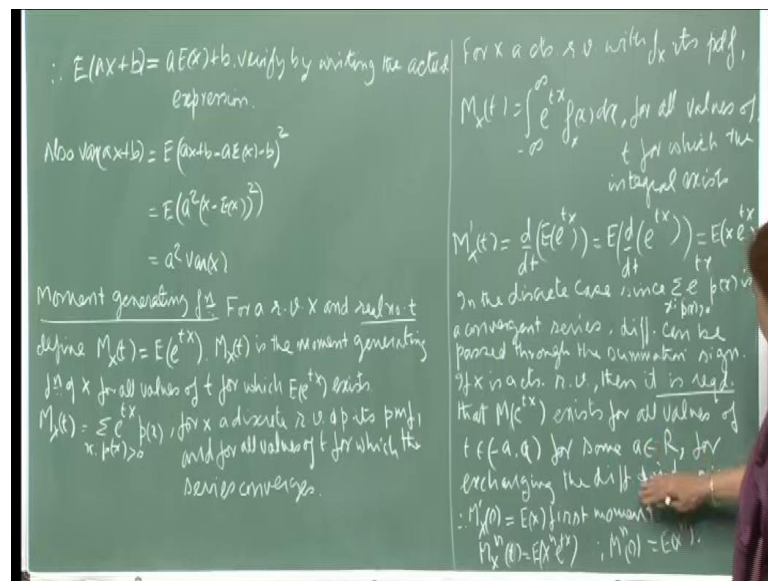 ∴ E(ax+b) = aE(x)+b. verify by writing the actual
expression.
Also var(ax+b) = E(ax+b-aE(x)-b)²
= E(a²(x-E(x))²)
= a² var(x)
Moment generating fⁿ. For a r.v. X and real no. t
define Mₓ(t) = E(e^{tx}). Mₓ(t) is the moment generating
fⁿ of x for all values of t for which E(e^{tx}) exists.
Mₓ(t) = Σ e^{tx} p(x), for x a discrete r.v. p its pmf,
x: p(x)>0
and for all values of t for which the
series converges.
For X a cts r.v with fₓ its pdf,
Mₓ(t) = ∫_{-∞}^{∞} e^{tx} fₓ(x) dx, for all values of
t for which the
integral exists
Mₓ'(t) = d/dt (E(e^{tx})) = E(d/dt (e^{tx})) = E(x e^{tx}
In the discrete case since Σ e^{tx} p(x) is
x: p(x)>0
a convergent series, diff. can be
passed through the summation sign.
If x is a cts. r.v., then it is reqd.
that M(e^{tx}) exists for all values of
t ∈ (-a, a) for some a ∈ R, for
exchanging the diff
∴ Mₓ'(0) = E(x) first moment
Mₓⁿ(t) = E(xⁿ e^{tx}) ; Mⁿ(0) = E(xⁿ).